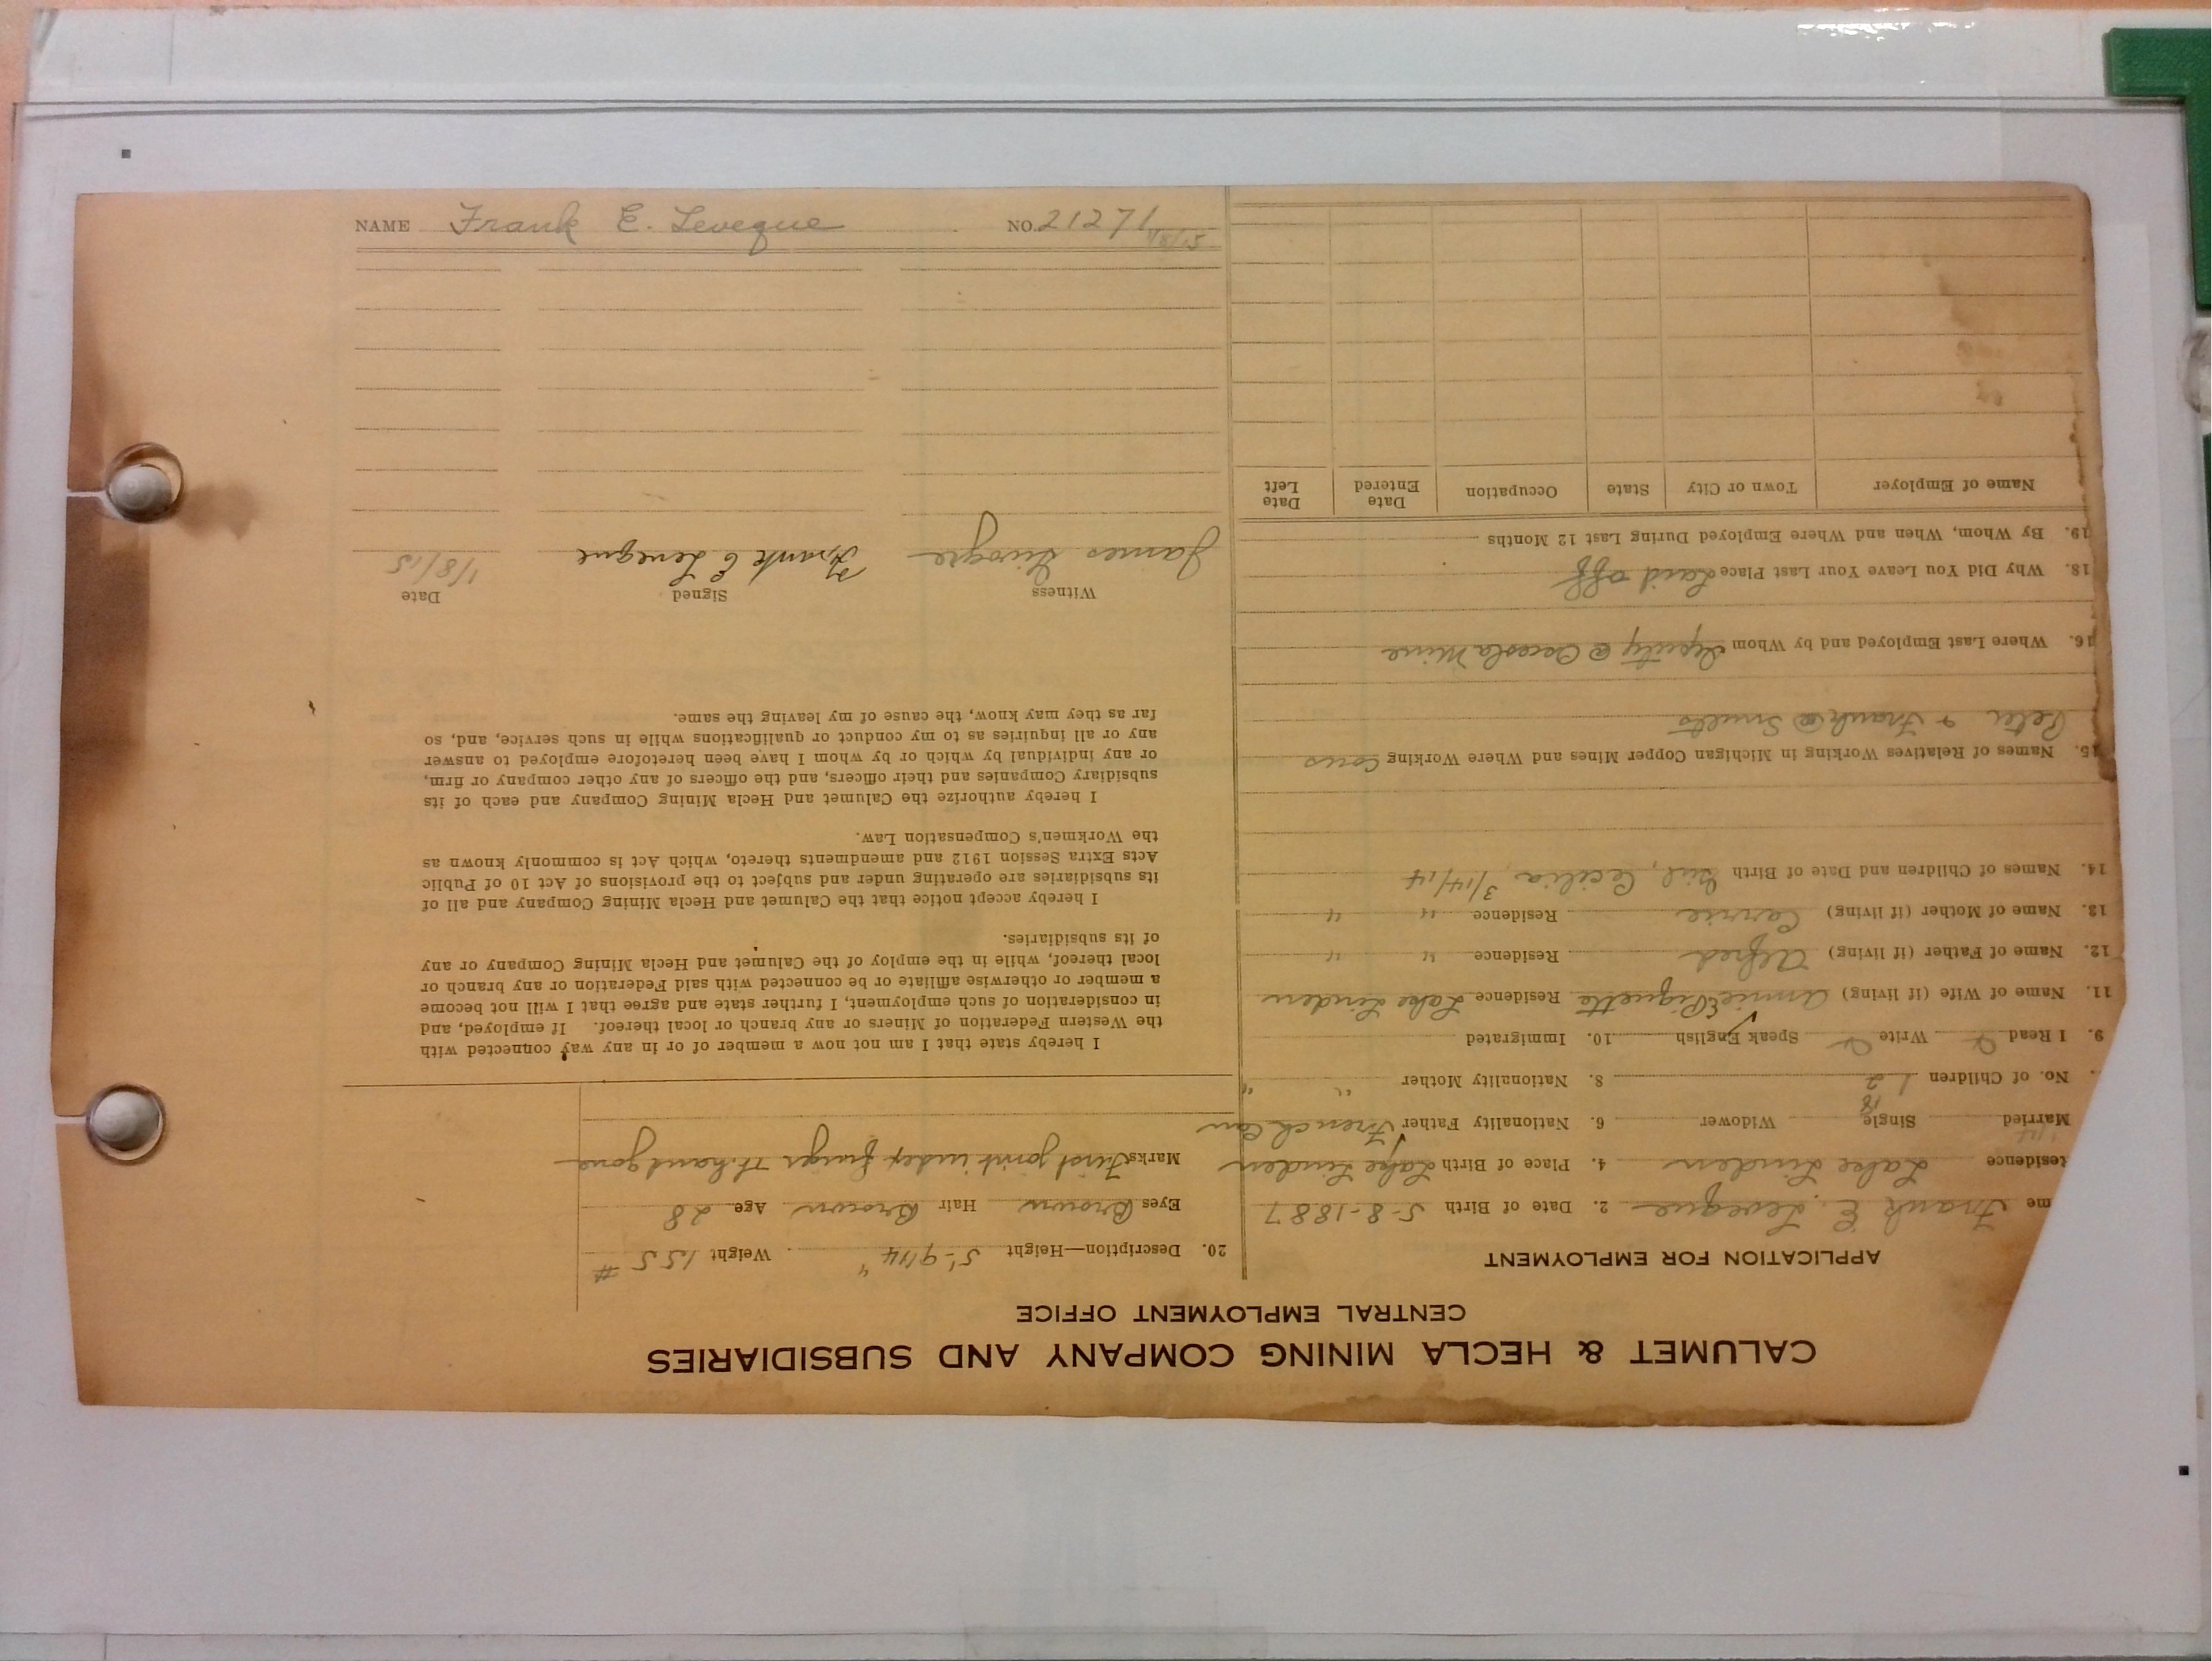 CALUMET & HECLA MINING COMPANY AND SUBSIDIARIES
CENTRAL EMPLOYMENT OFFICE
APPLICATION FOR EMPLOYMENT
me Frank E. Leveque 2. Date of Birth 5-8-1887
Residence Lake Linden 4. Place of Birth Lake Linden
Married Single Widower 6. Nationality Father French Can
No. of Children 8. Nationality Mother " "
9. I Read Write Speak English 10. Immigrated
11. Name of Wife (if living) Annie Piquette Residence Lake Linden
12. Name of Father (if living) Alfred Residence " "
13. Name of Mother (if living) Carrie Residence " "
14. Names of Children and Date of Birth Girl, Cecilia, 3/14/14
15. Names of Relatives Working in Michigan Copper Mines and Where Working Cous
Peter & Frank @ Smelts
16. Where Last Employed and by Whom Deputy @ Osceola Mine
18. Why Did You Leave Your Last Place Laid off
19. By Whom, When and Where Employed During Last 12 Months
Name of Employer Town or City State Occupation Date Entered Date Left
20. Description—Height 5'-9 1/4" Weight 155 #
Eyes Brown Hair Brown Age 28
Marks First joint index finger rt. hand gone
I hereby state that I am not now a member of or in any way connected with
the Western Federation of Miners or any branch or local thereof. If employed, and
in consideration of such employment, I further state and agree that I will not become
a member or otherwise affiliate or be connected with said Federation or any branch or
local thereof, while in the employ of the Calumet and Hecla Mining Company or any
of its subsidiaries.
I hereby accept notice that the Calumet and Hecla Mining Company and all of
its subsidiaries are operating under and subject to the provisions of Act 10 of Public
Acts Extra Session 1912 and amendments thereto, which Act is commonly known as
the Workmen's Compensation Law.
I hereby authorize the Calumet and Hecla Mining Company and each of its
subsidiary Companies and their officers, and the officers of any other company or firm,
or any individual by which or by whom I have been heretofore employed to answer
any or all inquiries as to my conduct or qualifications while in such service, and, so
far as they may know, the cause of my leaving the same.
Witness Signed Date
James Frank E Leveque 1/8/15
NAME Frank E. Leveque NO. 21271
1/8/15